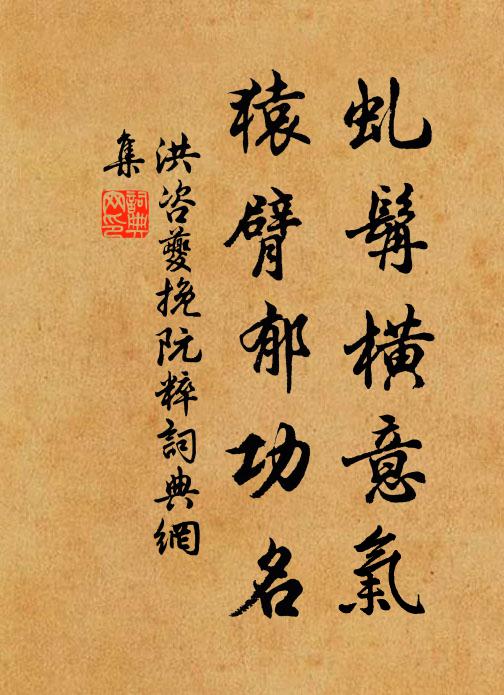 虬髯橫意氣
猿臂郁功名
洪咨夔挽阮粹詞典網
集
詞典網印